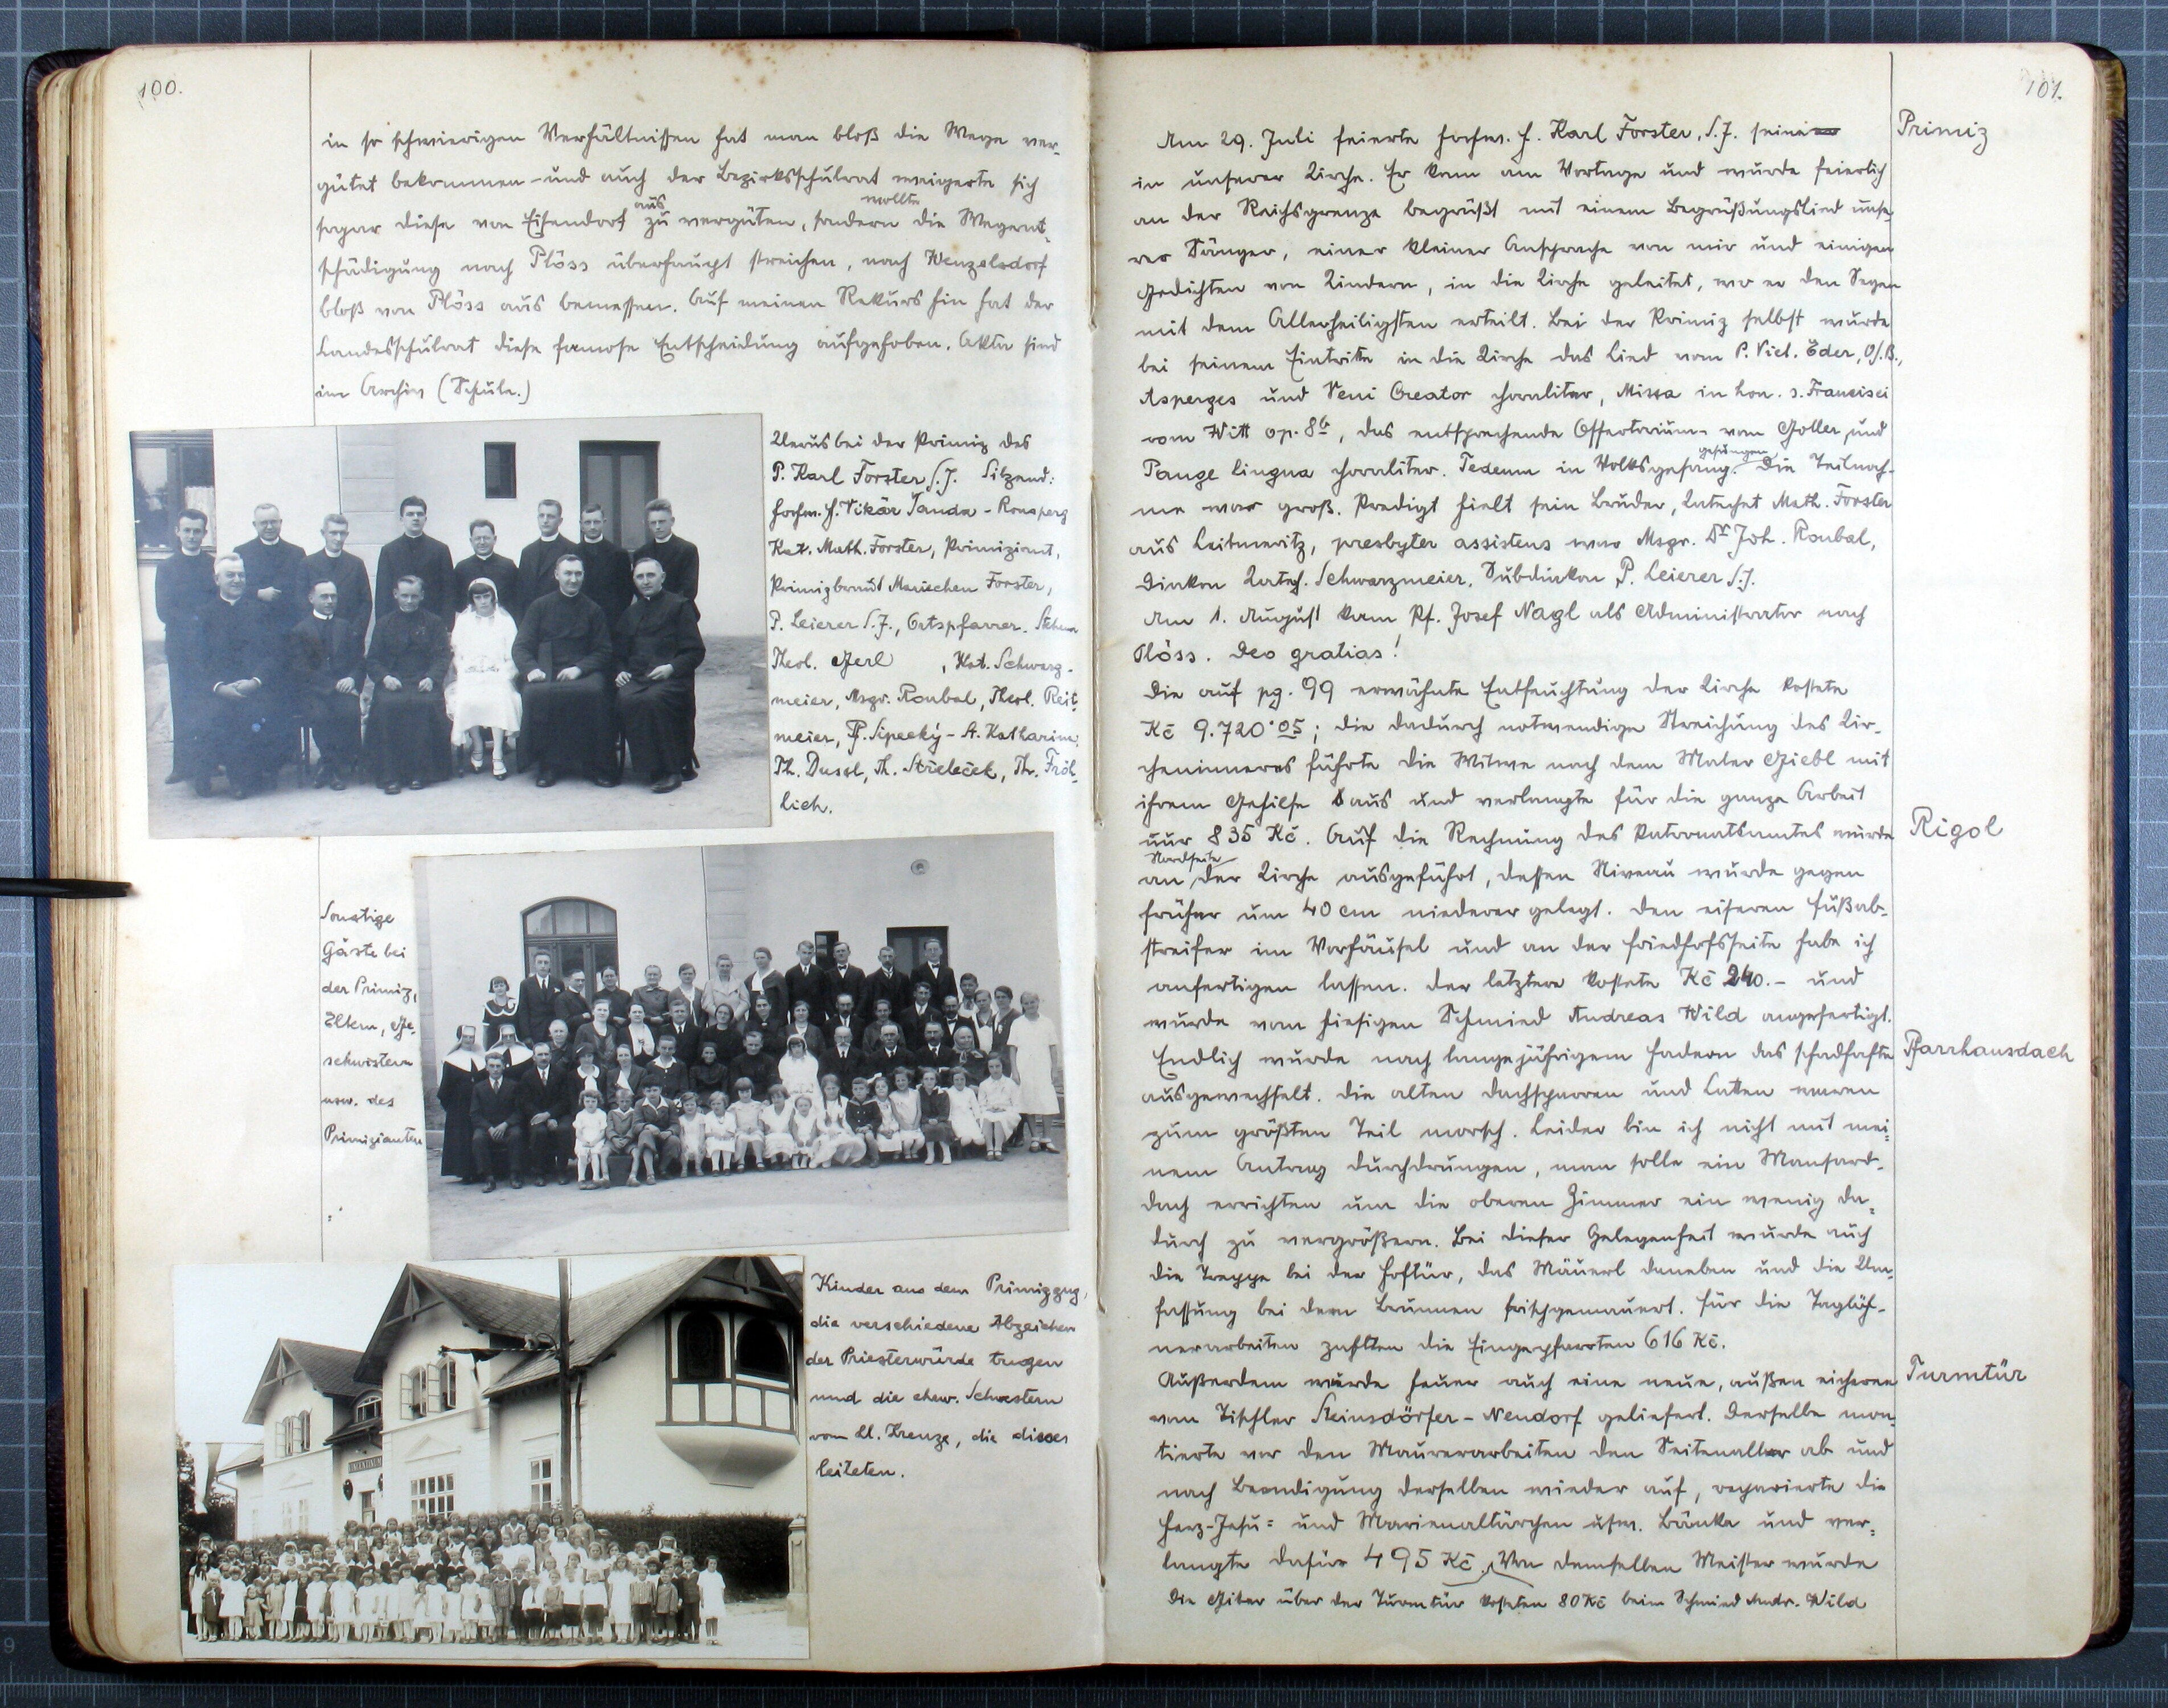 100.
in so schwierigen Verhältnissen hat man bloß die Wege ver-
gütet bekommen - und auch der Bezirksschulrat weigerte sich
sogar diese von Eisendorf aus zu vergüten, sondern wollte die Wegent-
schädigung nach Plöss überhaupt streichen, nach Wenzelsdorf
bloß von Plöss aus bemessen. Auf meinen Rekurs hin hat der
Landesschulrat diese famose Entscheidung aufgehoben. Akta sind
im Archiv (Schule.)
Klerus bei der Primiz des
P. Karl Forster S.J. Sitzend:
hochw. H. Vikär Janda - Ronsperg
Kat. Math. Forster, Primiziant,
Primizbraut Mariechen Forster,
P. Leierer S.J., Ortspfarrer. Stehen
Theol. Gerl, Kat. Schwarz-
meier, Msgr. Roubal, Theol. Reit-
meier, Pf. Sipecký - St. Katharina,
Th. Dussl, Th. Střeleček, Th. Fröh-
lich.
Sonstige
Gäste bei
der Primiz,
Eltern, Ge-
schwistern
usw. des
Primizianten
Kinder aus dem Primizzug,
die verschiedene Abzeichen
der Priesterwürde trugen
und die ehrw. Schwestern
vom hl. Kreuze, die dieses
leiteten.
101.
Primiz
Am 29. Juli feierte hochw. H. Karl Forster, S.J. seine
in unserer Kirche. Er kam am Vortage und wurde feierlich
an der Reichsgrenze begrüßt mit einem Begrüßungslied unse-
rer Sänger, einer kleiner Ansprache von mir und einigen
Gedichten von Kindern, in die Kirche geleitet, wo er den Segen
mit dem Allerheiligsten erteilt. Bei der Primiz selbst wurde
bei seinem Eintritte in die Kirche das Lied vom P. Vict. Eder, O.S.B.,
Asperges und Veni Creator choraliter, Missa in hon. s. Francisci
vom Witt op. 8b, das entsprechende Offertorium vom Goller und
Pange lingua choraliter. Tedeum in Volksgesang gesungen. Die Teilnah-
me war groß. Predigt hielt sein Bruder, Katechet Math. Forster
aus Leitmeritz, presbyter assistens war Msgr. Dr Joh. Roubal,
Diakon Katech. Schwarzmeier, Subdiakon P. Leierer S.J.
Am 1. August kam Pf. Josef Nagl als Administrator nach
Plöss. Deo gratias!
Die auf pg. 99 erwähnte Entfeuchtung der Kirche kostete
Kč 9.720·05; die dadurch notwendige Streichung des Kir-
cheninneres führte die Witwe nach dem Maler Giebl mit
ihrem Gehilfe aus und verlangte für die ganze Arbeit
nur 835 Kč. Auf die Rechnung des Patronatsamtes wurde
Rigol
an der Nordseite Kirche ausgeführt, dessen Niveau wurde gegen
früher um 40 cm niederer gelegt. Den eiseren Fußab-
streifer im Vorhäusel und an der Friedhofsseite habe ich
anfertigen lassen. Der letztere kostete Kč 240.- und
wurde vom hiesigen Schmied Andreas Wild angefertigt.
Endlich wurde nach langejährigem Hadern das schadhafte
Pfarrhausdach
ausgewechselt. Die alten Dachsparren und Latten waren
zum größten Teil morsch. Leider bin ich nicht mit mei-
nem Antrag durchdrungen, man solle ein Mansard-
dach errichten um die oberen Zimmer ein wenig da-
durch zu vergrößern. Bei dieser Gelegenheit wurde auch
die Treppe bei der Hoftür, das Mäuerl daneben und die Um-
fassung bei dem Brunnen frischgemauert. Für die Taglöh-
nerarbeiten zahlten die Eingepfarrten 616 Kč.
Außerdem wurde heuer auch eine neue, außen eicherne
Turmtür
vom Tischler Steinsdörfer - Neudorf geliefert. Derselbe mon-
tierte vor den Maurerarbeiten den Seitenaltar ab und
nach Beendigung derselben wieder auf, reparierte die
Herz-Jesu- und Marienaltärchen usw. Bänke und ver-
langte dafür 495 Kč. Von demselben Meister wurde
Die Giter über der Turmtür kosteten 80 Kč beim Schmied Andr. Wild